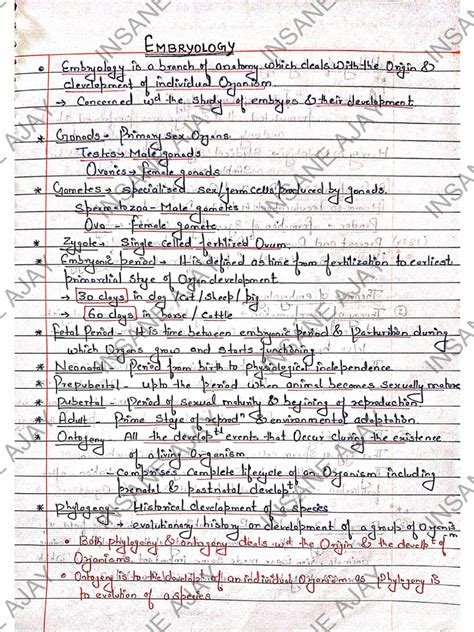 EMBRYOLOGY
• Embryology is a branch of anatomy which deals with the Origin &
development of individual Organism
→ Concerned wd the study of embryos & their development
* Gonads → Primary sex Organs
Testes → Male gonads
Ovaries → female gonads
* Gametes → specialised sex/germ cells produced by gonads.
Spermatozoa - Male gametes
Ova - Female gamete
* Zygote → Single celled fertilized Ovum.
* Embryonic period → It is defined as time from fertilization to earliest
primordial stage of Organ development
→ 30 days in dog / cat / sheep / pig
→ 60 days in horse / cattle
* Fetal Period - It is time between embryonic period & Parturition during
which Organs grow and starts functioning
* Neonatal - Period from birth to physiological independence
* Prepubertal - upto the period when animal becomes sexually mature
* Pubertal - Period of sexual maturity & begining of reproduction
* Adult - Prime stage of reprodⁿ & environmental adaptation
* Ontogeny - All the developtl events that Occur during the existence
of a living Organism
- Comprises complete lifecycle of an Organism including
prenatal & postnatal developt
* Phylogeny - Historical development of a species
→ evolutionary history or development of a group of Organism
• Both phylogeny & ontogeny deals wd the Origin & the developt of
Organisms.
• Ontogeny is to the developt of an individual Organism as phylogeny is
to evolution of a species
INSANE AJAY